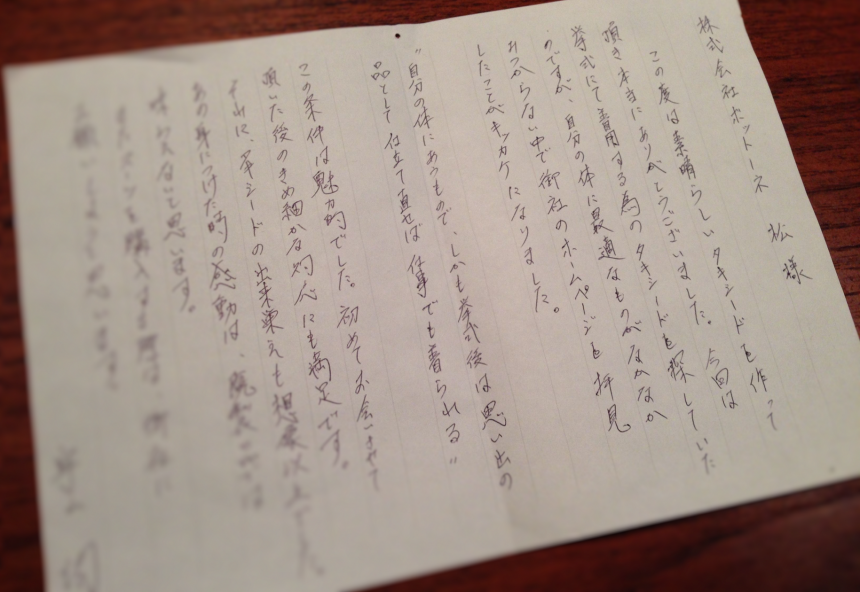 株式会社ホットーネ 松様
この度は素晴らしいタキシードを作って
頂き本当にありがとうございました。今回は
挙式にて着用する為のタキシードを探していた
のですが、自分の体に最適なものがなかなか
みつからない中で御社のホームページを拝見
したことがキッカケになりました。
"自分の体にあうもので、しかも挙式後は思い出の
品として仕立て直せば仕事でも着られる"
この条件は魅力的でした。初めてお会いさせて
頂いた後のきめ細かな対応にも満足です。
それに、タキシードの出来栄えも想像以上でした。
あの身につけた時の感動は、
味わえないと思います。